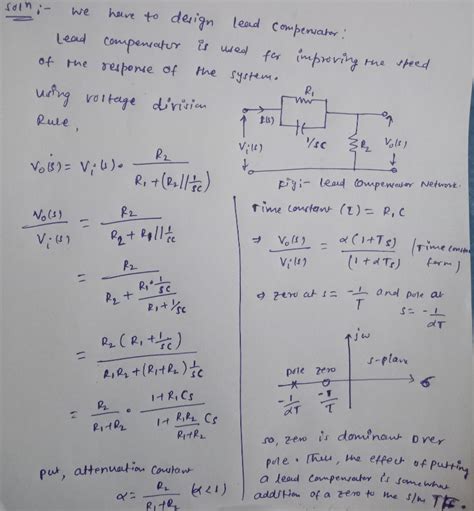 Soln:- We have to design lead compensator:
Lead compensator is used for improving the speed
of the response of the system.
Using voltage division
Rule,
Vo(s) = Vi(s) · R2 / (R1 + (R2 || 1/sC))
Vo(s) / Vi(s) = R2 / (R2 + R1 || 1/sC)
= R2 / (R2 + (R1 · 1/sC) / (R1 + 1/sC))
= R2 (R1 + 1/sC) / (R1R2 + (R1+R2) 1/sC)
= R2 / (R1+R2) · (1 + R1Cs) / (1 + (R1R2 / (R1+R2)) Cs)
put, attenuation constant
α = R2 / (R1+R2) (α<1)
R1
I(s)
1/sC
Vi(s)
R2
Vo(s)
Fig:- Lead Compensator Network.
Time constant (τ) = R1C
⇒ Vo(s) / Vi(s) = α(1+Ts) / (1+αTs) (Time constant
form)
⇒ zero at s = -1/T and pole at
s = -1/αT
jω
s-plane
pole zero
σ
-1/αT -1/T
so, zero is dominant over
pole. Thus, the effect of putting
a lead compensator is somewhat
addition of a zero to the s/m TF.